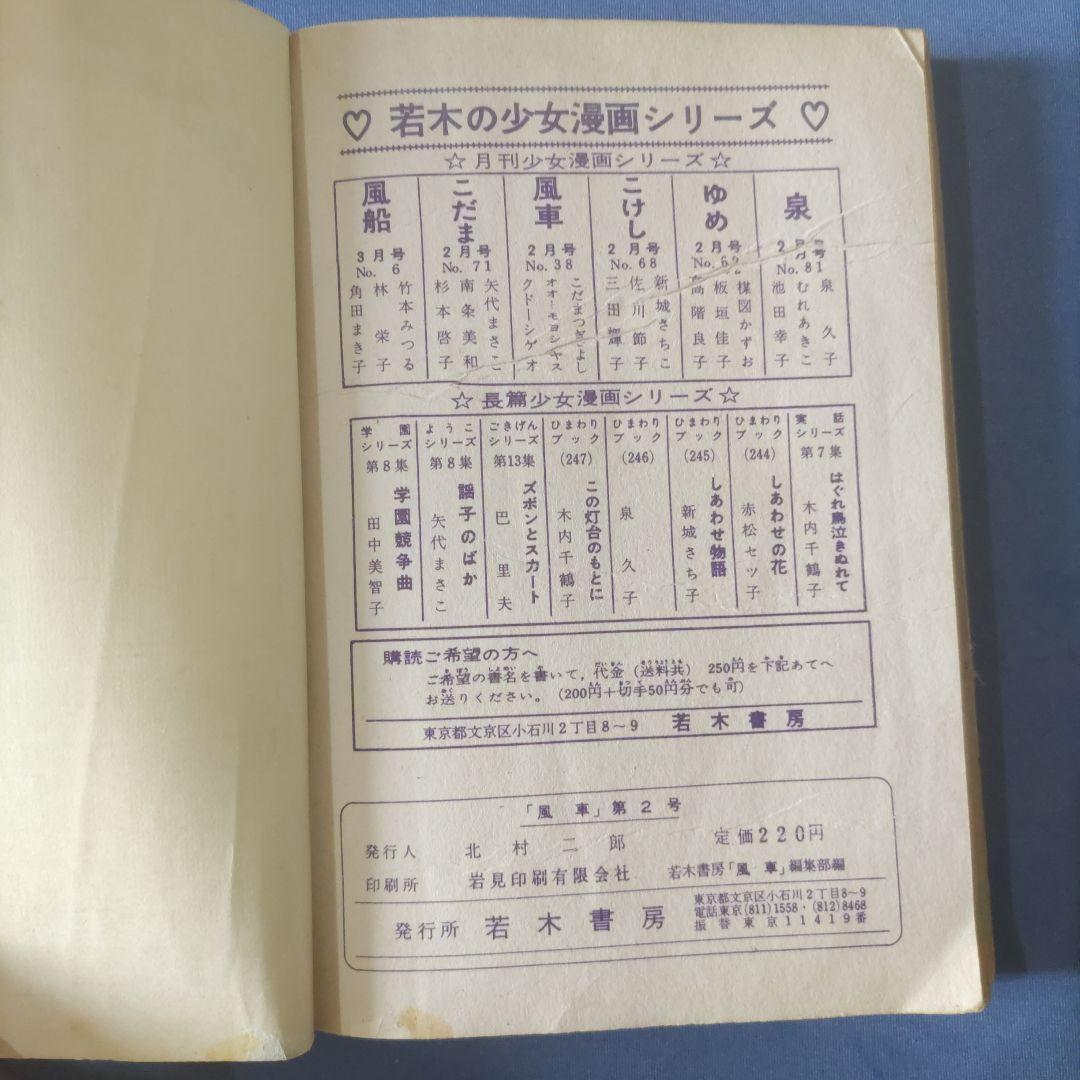 ♡ 若木の少女漫画シリーズ ♡
☆月刊少女漫画シリーズ☆
泉
2月号
No.81
泉久子
むれあきこ
池田幸子
ゆめ
2月号
楳図かずお
板垣佳子
高階良子
こけし
2月号
No.68
新城さちこ
佐川節子
三田輝子
風車
2月号
No.38
こだまつぎよし
オオ・モヨシヤス
クドーシゲオ
こだま
2月号
No.71
矢代まさこ
南条美和
杉本啓子
風船
3月号
No.6
竹本みつる
林栄子
角田まき子
☆長篇少女漫画シリーズ☆
実話
シリーズ
第7集
はぐれ鳥泣きぬれて
木内千鶴子
ひまわり
ブック
(244)
しあわせの花
赤松セツ子
ひまわり
ブック
(245)
しあわせ物語
新城さち子
ひまわり
ブック
(246)
泉久子
ひまわり
ブック
(247)
この灯台のもとに
木内千鶴子
ごきげん
シリーズ
第13集
ズボンとスカート
巴里夫
ようこ
シリーズ
第8集
謡子のばか
矢代まさこ
学園
シリーズ
第8集
学園競争曲
田中美智子
購読ご希望の方へ
ご希望の書名を書いて,代金(送料共) 250円を下記あてへ
お送りください。(200円+切手50円分でも可)
東京都文京区小石川2丁目8〜9 若木書房
「風車」第2号
発行人 北村二郎 定価220円
印刷所 岩見印刷有限会社 若木書房「風車」編集部編
発行所 若木書房
東京都文京区小石川2丁目8〜9
電話東京(811)1558・(812)8468
振替東京11419番